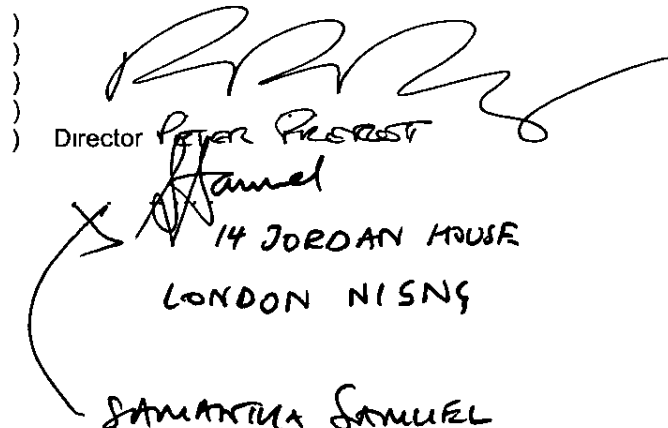 )
)
)
)
) Director PETER
Samuel
14 JORDAN HOUSE
LONDON N1 5NG
SAMANTHA SAMUEL